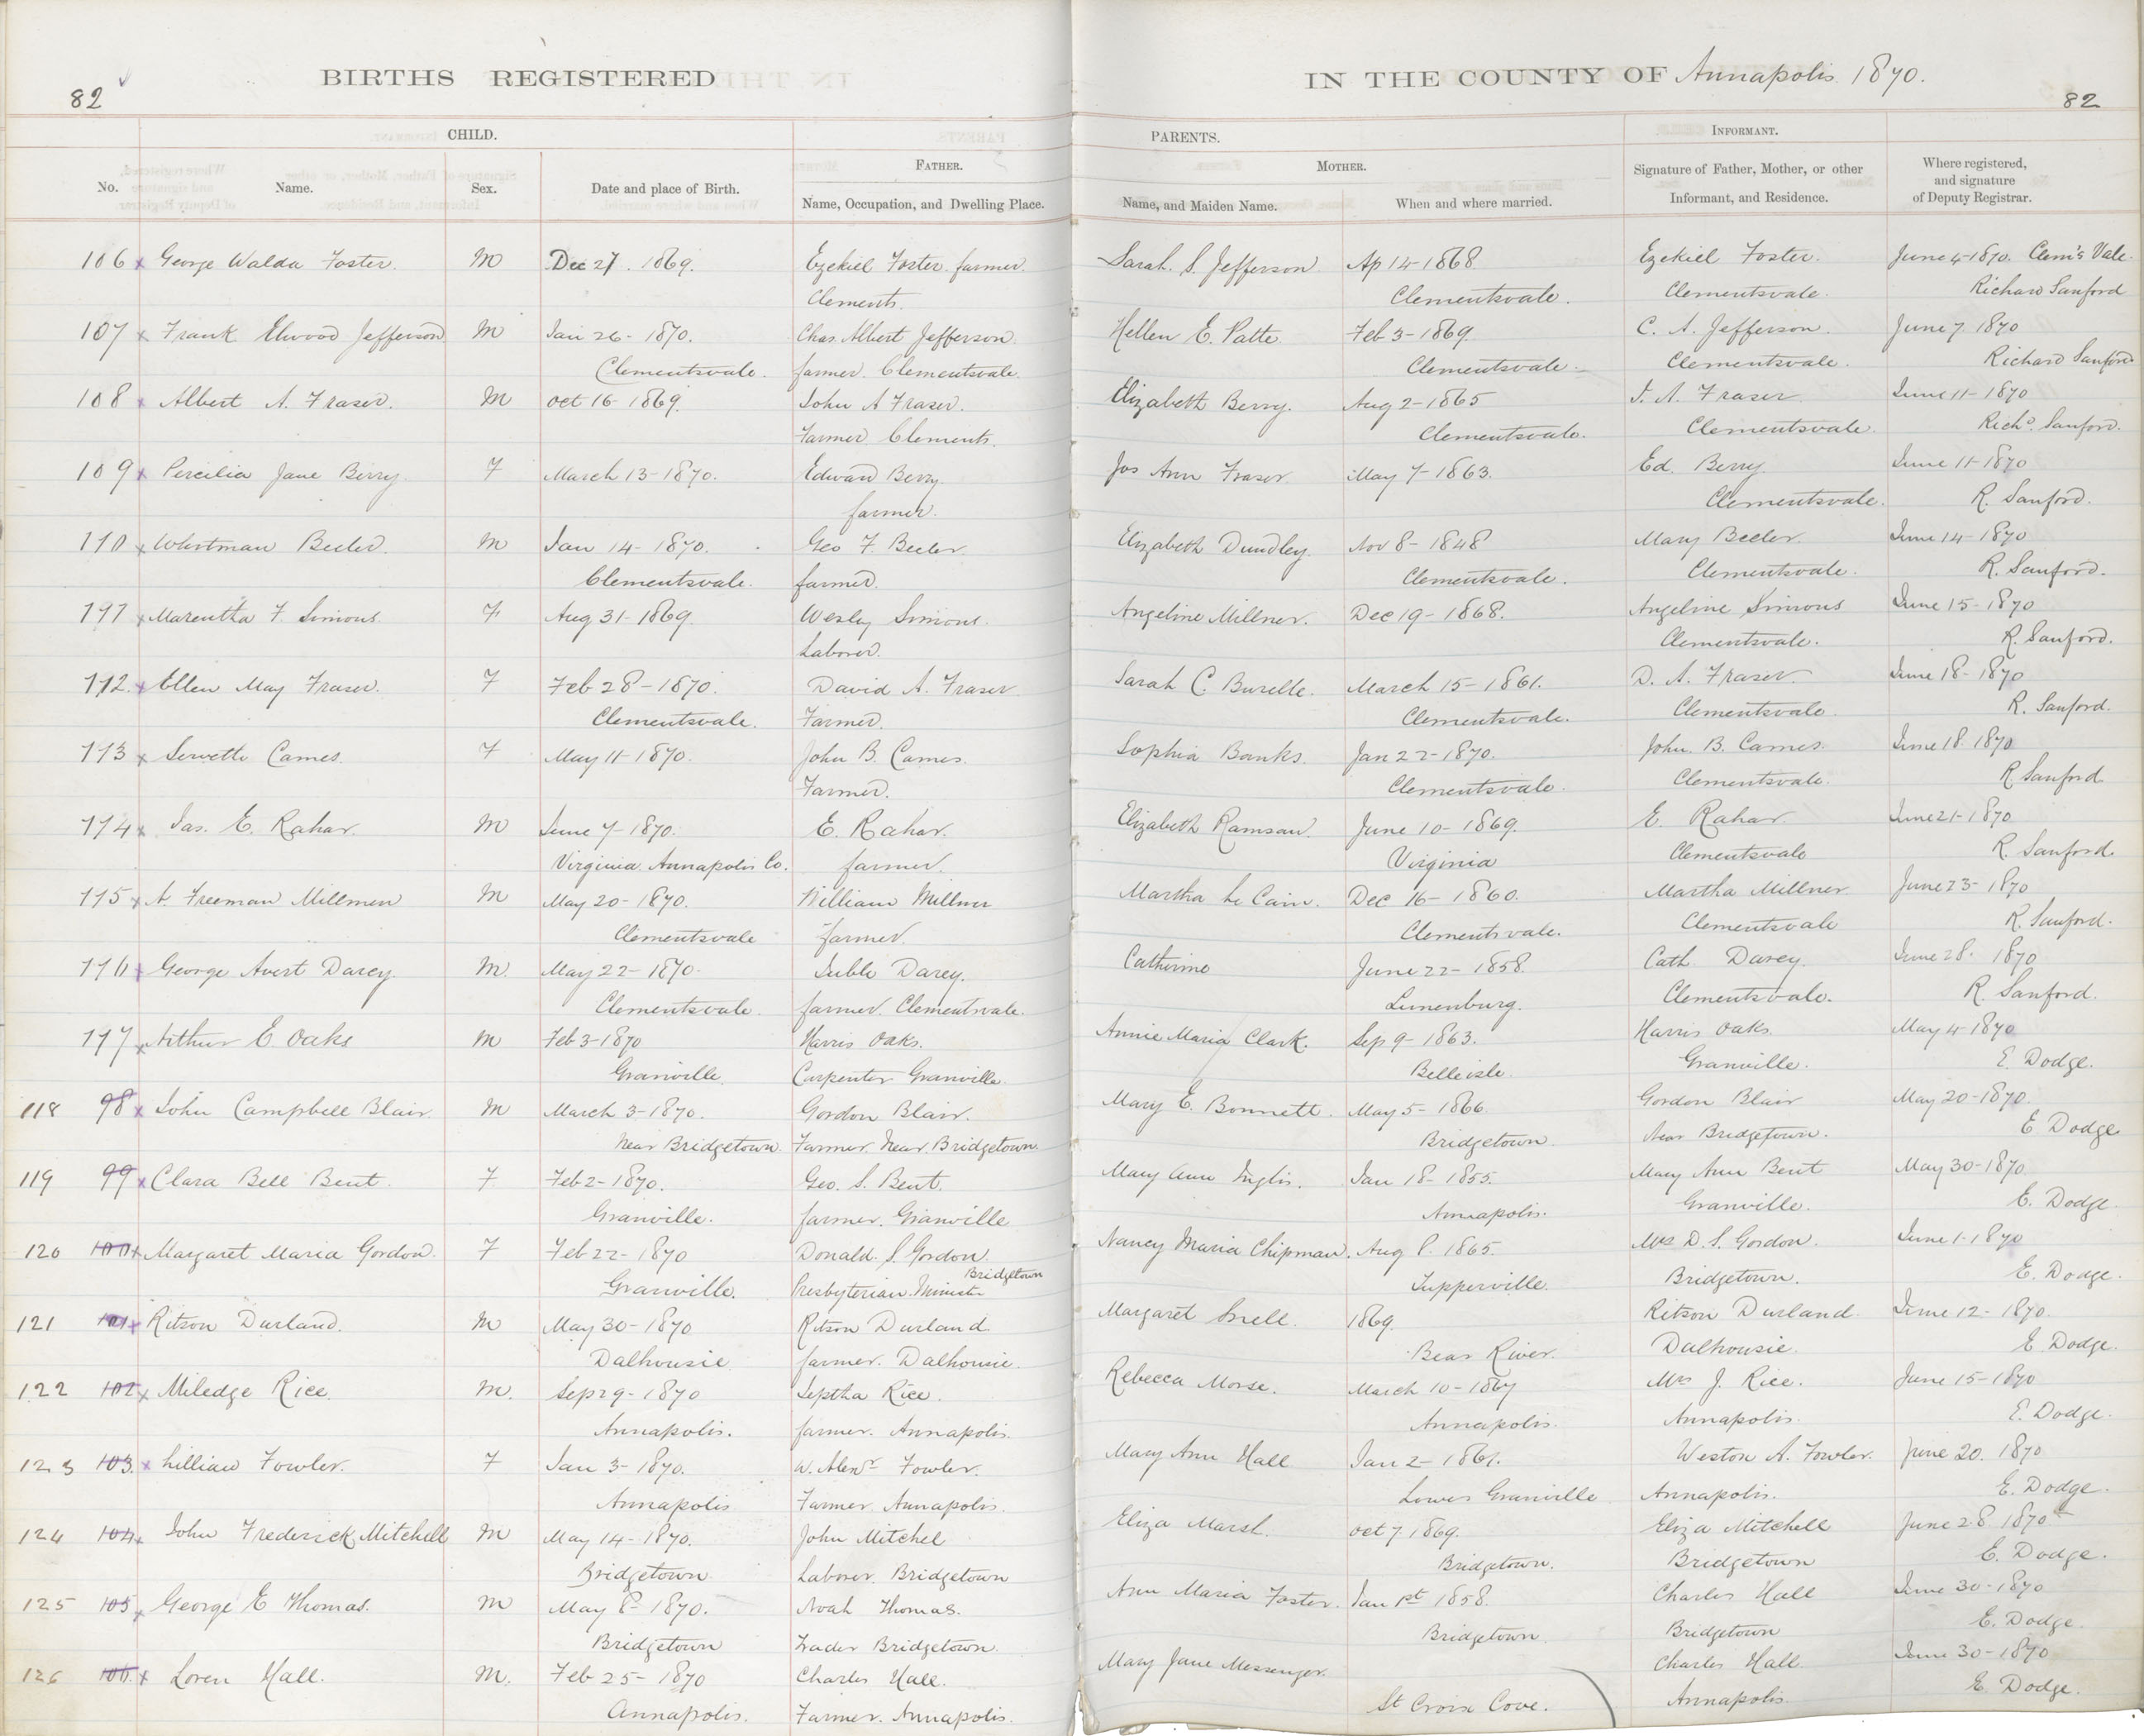 82
BIRTHS REGISTERED
IN THE COUNTY OF Annapolis 1870.
82
CHILD.
PARENTS.
INFORMANT.
No.
Name.
Sex.
Date and place of Birth.
FATHER.
Name, Occupation, and Dwelling Place.
MOTHER.
Name, and Maiden Name.
When and where married.
Signature of Father, Mother, or other
Informant, and Residence.
Where registered,
and signature
of Deputy Registrar.
106 x George Walda Foster. M Dec 27. 1869. Ezekiel Foster. farmer. Sarah. S. Jefferson Ap 14-1868 Ezekiel Foster. June 4-1870. Clem's Vale
Clements. Clementsvale. Clementsvale. Richard Sanford
107 x Frank Elwood Jefferson M Jan 26-1870. Chas. Albert Jefferson. Hellen E. Patte Feb 3-1869. C. A. Jefferson. June 7 1870
Clementsvale. farmer. Clementsvale. Clementsvale. Clementsvale. Richard Sanford
108 x Albert A. Fraser. M Oct 16-1869. John A Fraser. Elizabeth Berry. Aug 2-1865 J. A. Fraser June 11-1870
Farmer Clements. Clementsvale. Clementsvale. Richd. Sanford.
109 x Percilia Jane Berry F March 13-1870. Edward Berry Jos Ann Fraser May 7-1863. Ed. Berry. June 11-1870
farmer. Clementsvale. R. Sanford.
110 x Whitman Beeler. M Jan 14-1870. Geo F. Beeler Elizabeth Dundley. Nov 8-1848 Mary Beeler. June 14-1870
Clementsvale. farmer. Clementsvale. Clementsvale. R. Sanford.
111 x Marentha F. Simons. F Aug 31-1869. Wesley Simons. Angeline Millner. Dec 19-1868. Angeline Simons June 15-1870
Laborer. Clementsvale. R. Sanford.
112. x Ellen May Fraser. F Feb 28-1870. David A. Fraser Sarah C. Burelle. March 15-1861. D. A. Fraser. June 18-1870
Clementsvale. Farmer. Clementsvale. Clementsvale R. Sanford.
113 x Servetta Cames. F May 11-1870. John B. Cames. Sophia Banks. Jan 22-1870. John. B. Cames. June 18 1870
Farmer. Clementsvale. Clementsvale. R Sanford
114 x Jas. E. Rahar. M June 7-1870. E. Rahar. Elizabeth Ramsau. June 10-1869. E. Rahar June 21-1870
Virginia Annapolis Co. farmer. Virginia Clementsvale R. Sanford
115 x A. Freeman Millmen M May 20-1870. William Millner Martha Le Cain. Dec 16-1860. Martha Millner June 23-1870
Clementsvale farmer. Clementsvale. Clementsvale R. Sanford.
116 x George Avert Darey M. May 22-1870. Darey. Catherine June 22-1858. Cath Darey. June 28. 1870
Clementsvale. farmer. Clementsvale. Lunenburg. Clementsvale. R. Sanford.
117 x Arthur E. Oaks M Feb 3-1870 Harris Oaks. Annie Maria Clark. Sep 9-1863. Harris Oaks. May 4-1870
Granville. Carpenter Granville. Belleisle. Granville. E. Dodge.
118 98 x John Campbell Blair. M March 3-1870. Gordon Blair. Mary E. Bonnett. May 5-1866. Gordon Blair May 20-1870.
Near Bridgetown. Farmer. Near. Bridgetown. Bridgetown Near Bridgetown. E Dodge
119 99 x Clara Bell Bent. F Feb 2-1870. Geo. S. Bent. Mary Ann Inglis. Jan 18-1855. Mary Ann Bent May 30-1870
Granville. farmer. Granville Annapolis. Granville. E. Dodge.
120 100 x Margaret Maria Gordon. F Feb 22-1870 Donald. S. Gordon Nancy Maria Chipman. Aug 8. 1865. Mrs D. S. Gordon. June 1-1870
Granville. Presbyterian. Minister Bridgetown Tupperville. Bridgetown. E. Dodge.
121 101 x Ritson Durland. M May 30-1870 Ritson Durland. Margaret Snell. 1869. Ritson Durland June 12-1870.
Dalhousie farmer. Dalhousie. Bear River. Dalhousie. E Dodge.
122 102 x Miledge Rice. M. Sep 29-1870 Jeptha Rice. Rebecca Morse. March 10-1867 Mrs J. Rice. June 15-1870
Annapolis. farmer. Annapolis. Annapolis. Annapolis. E. Dodge.
123 103. x Lillian Fowler. F Jan 3-1870. W. Alexr Fowler. Mary Ann Hall Jan 2-1861. Weston A. Fowler. June 20. 1870
Annapolis Farmer. Annapolis. Lower Granville Annapolis. E. Dodge.
124 104 x John Frederick Mitchell M May 14-1870. John Mitchel Eliza Marsh. Oct 7. 1869. Eliza Mitchell June 28. 1870
Bridgetown Laborer. Bridgetown Bridgetown. Bridgetown E. Dodge.
125 105 x George E Thomas. M May 8-1870. Noah Thomas. Ann Maria Foster. Jan 1st 1858. Charles Hall June 30-1870
Bridgetown Trader Bridgetown Bridgetown. Bridgetown E. Dodge
126 106. x Loren Hall. M. Feb 25-1870 Charles Hall. Mary Jane Messenger. Charles Hall June 30-1870
Annapolis. Farmer. Annapolis. St Croix Cove. Annapolis E. Dodge.